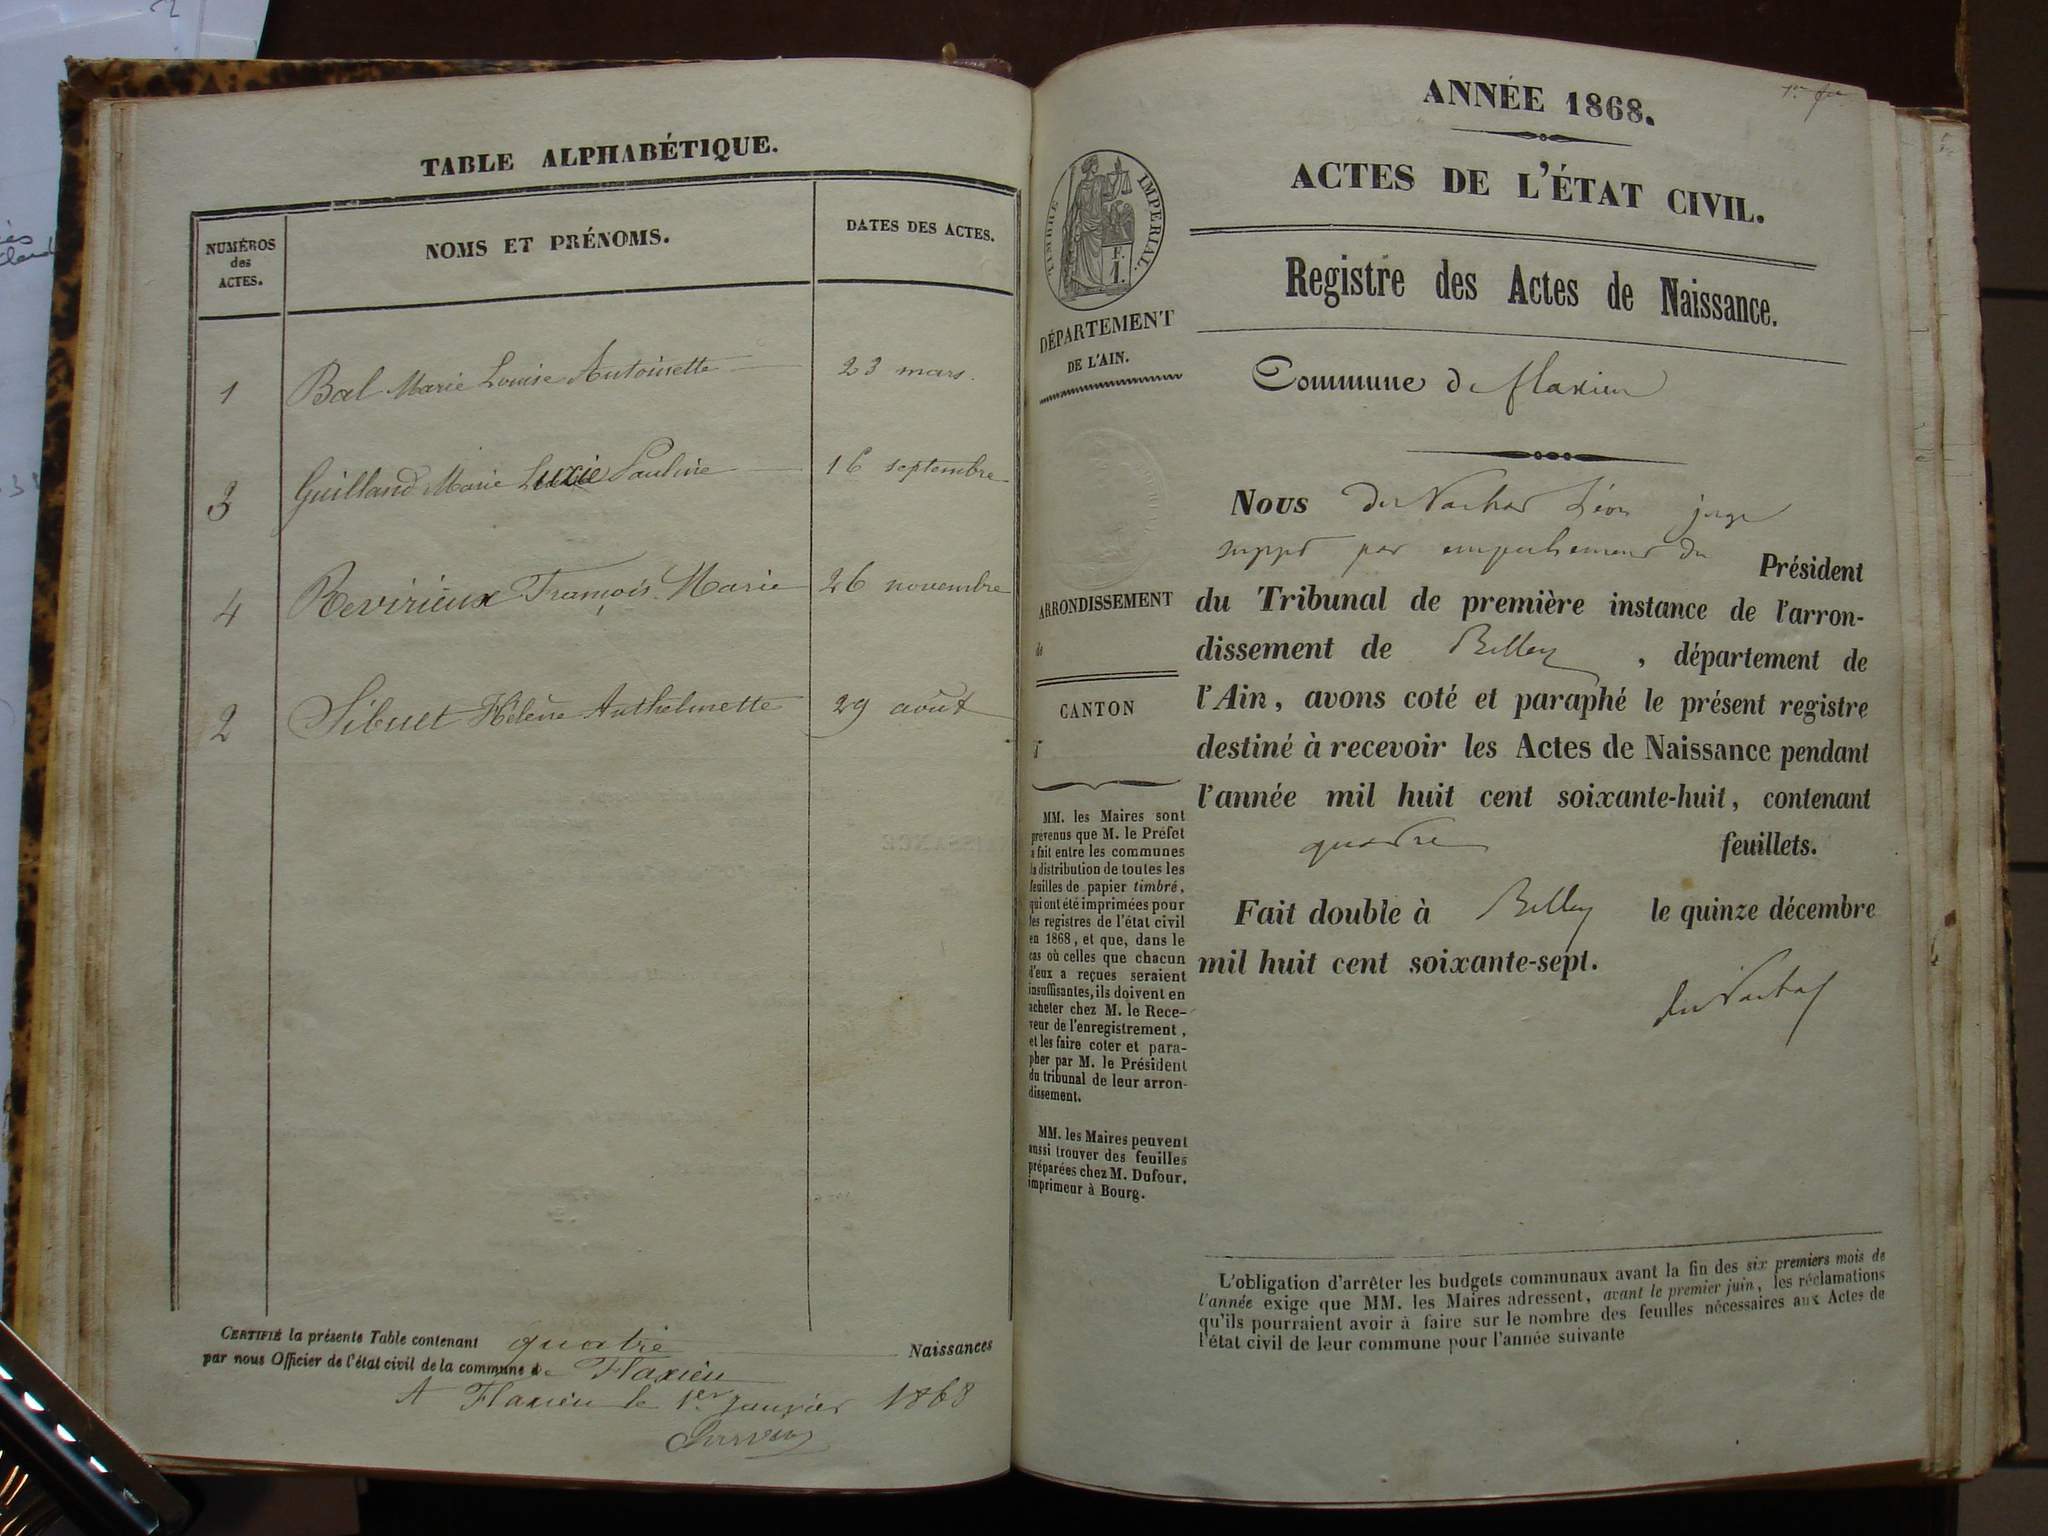 TABLE ALPHABÉTIQUE.
NUMÉROS
des
ACTES.
NOMS ET PRÉNOMS.
DATES DES ACTES.
1 Bal Marie Louise Antoinette 23 mars.
3 Guilland Marie Lucie Pauline 16 septembre
4 Revirieux François Marie 26 novembre
2 Sibuet Hélène Anthelmette 29 août
CERTIFIÉ la présente Table contenant quatre Naissances
par nous Officier de l'état civil de la commune de Flaxieu
A Flaxieu le 1er Janvier 1868
ANNÉE 1868.
ACTES DE L'ÉTAT CIVIL.
Registre des Actes de Naissance.
TIMBRE IMPÉRIAL.
F.
1.
DÉPARTEMENT
DE L'AIN.
Commune de Flaxieu
Nous Léon juge
suppt par empechement du Président
du Tribunal de première instance de l'arron-
dissement de Belley, département de
l'Ain, avons coté et paraphé le présent registre
destiné à recevoir les Actes de Naissance pendant
l'année mil huit cent soixante-huit, contenant
quatre feuillets.
Fait double à Belley le quinze décembre
mil huit cent soixante-sept.
ARRONDISSEMENT
de
CANTON
MM. les Maires sont
prévenus que M. le Préfet
a fait entre les communes
la distribution de toutes les
feuilles de papier timbré,
qui ont été imprimées pour
les registres de l'état civil
en 1868, et que, dans le
cas où celles que chacun
d'eux a reçues seraient
insuffisantes, ils doivent en
acheter chez M. le Rece-
veur de l'enregistrement,
et les faire coter et para-
pher par M. le Président
du tribunal de leur arron-
dissement.
MM. les Maires peuvent
aussi trouver des feuilles
préparées chez M. Dufour,
imprimeur à Bourg.
L'obligation d'arrêter les budgets communaux avant la fin des six premiers mois de
l'année exige que MM. les Maires adressent, avant le premier juin, les réclamations
qu'ils pourraient avoir à faire sur le nombre des feuilles nécessaires aux Actes de
l'état civil de leur commune pour l'année suivante